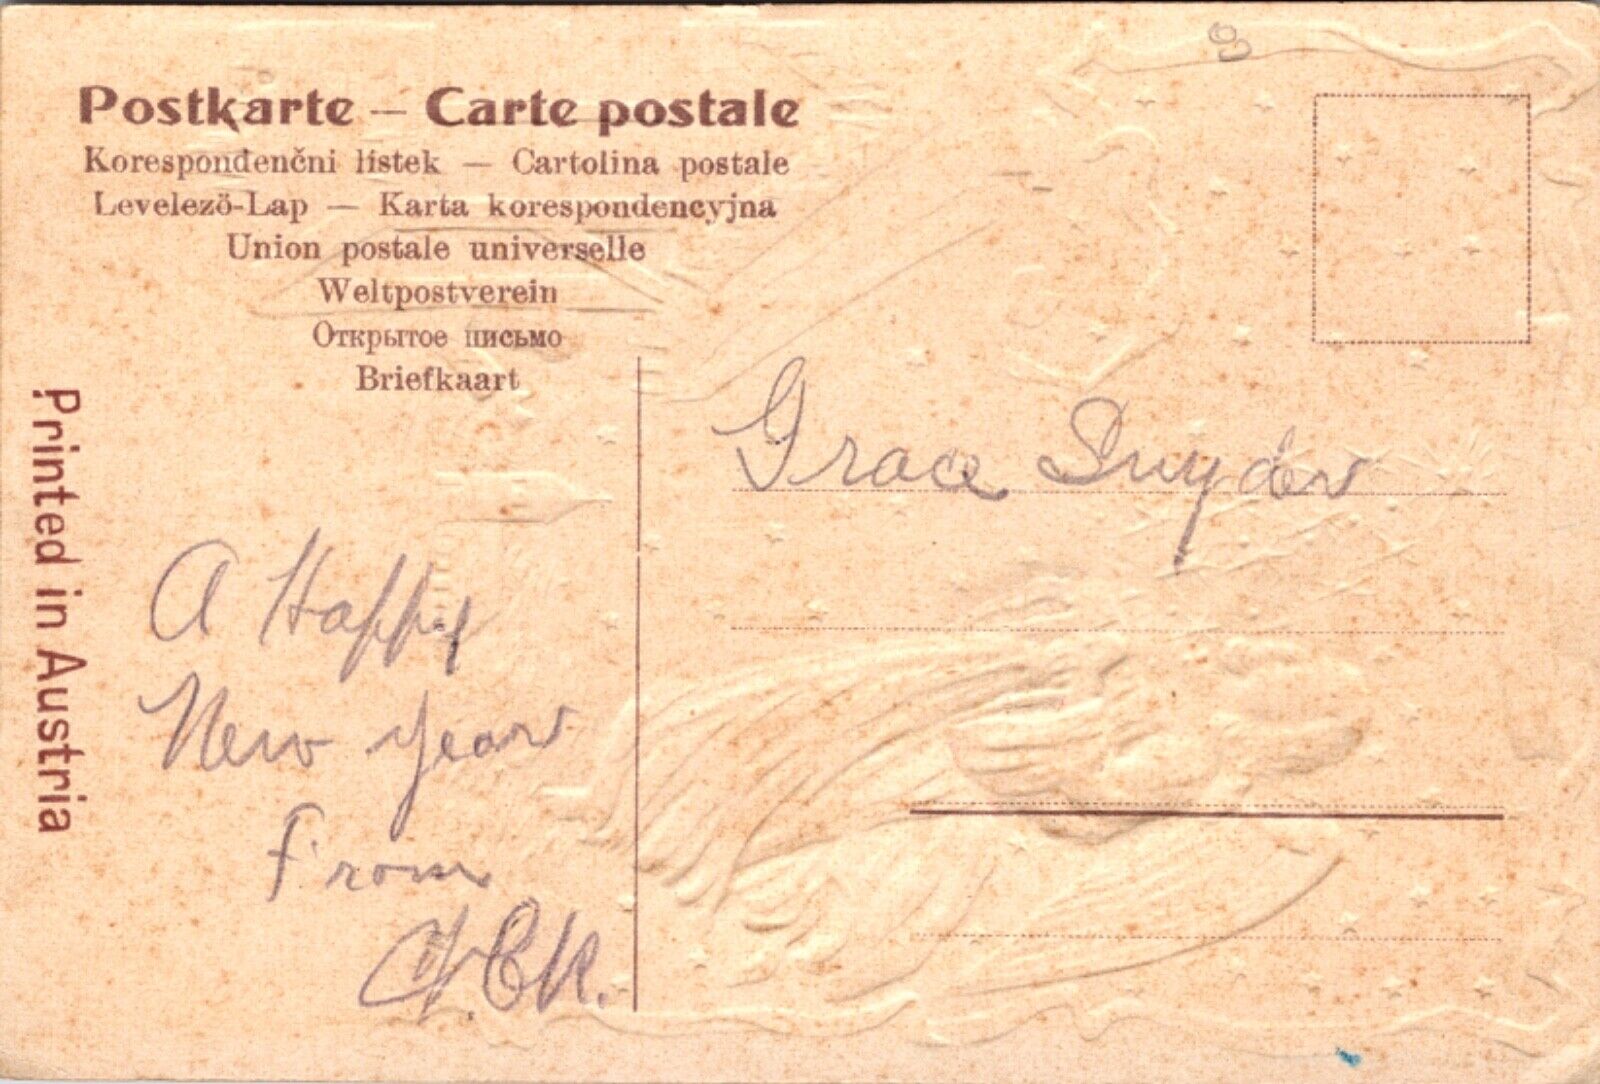 Postkarte — Carte postale
Korespondenčni listek — Cartolina postale
Levelező-Lap — Karta korespondencyjna
Union postale universelle
Weltpostverein
Открытое письмо
Briefkaart
Printed in Austria
Grace Snyder
A Happy
New year
from